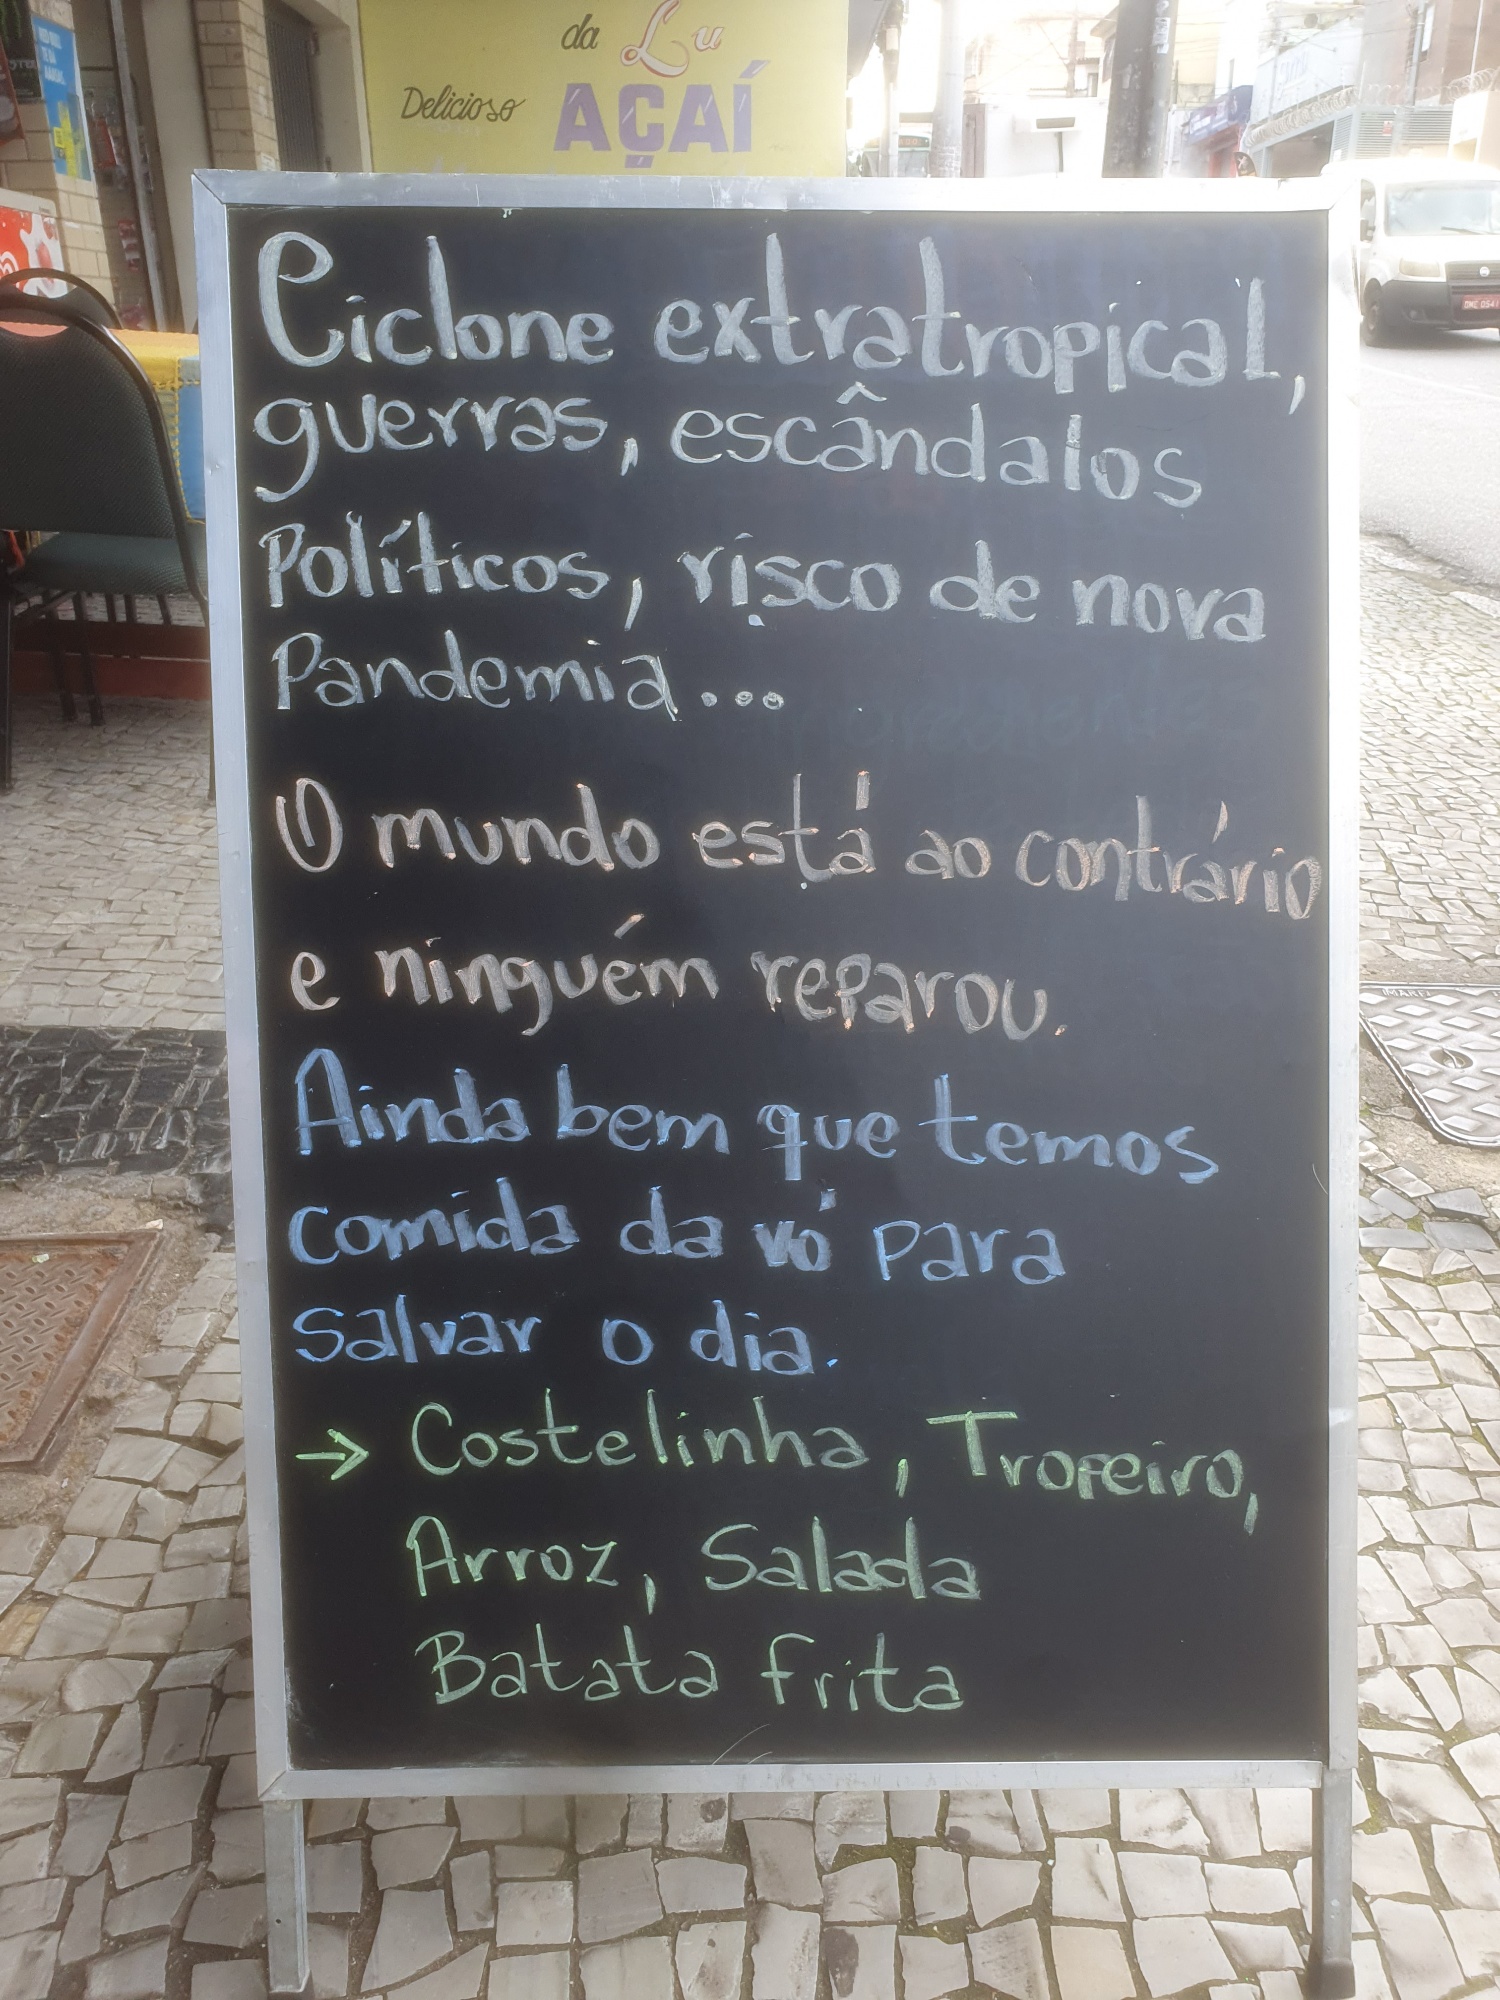 da Lu
Delicioso AÇAÍ
Ciclone extratropical,
guerras, escândalos
Políticos, risco de nova
Pandemia...
O mundo está ao contrário
e ninguém reparou.
Ainda bem que temos
comida da vó para
salvar o dia.
→ Costelinha, Tropeiro,
Arroz, Salada
Batata frita